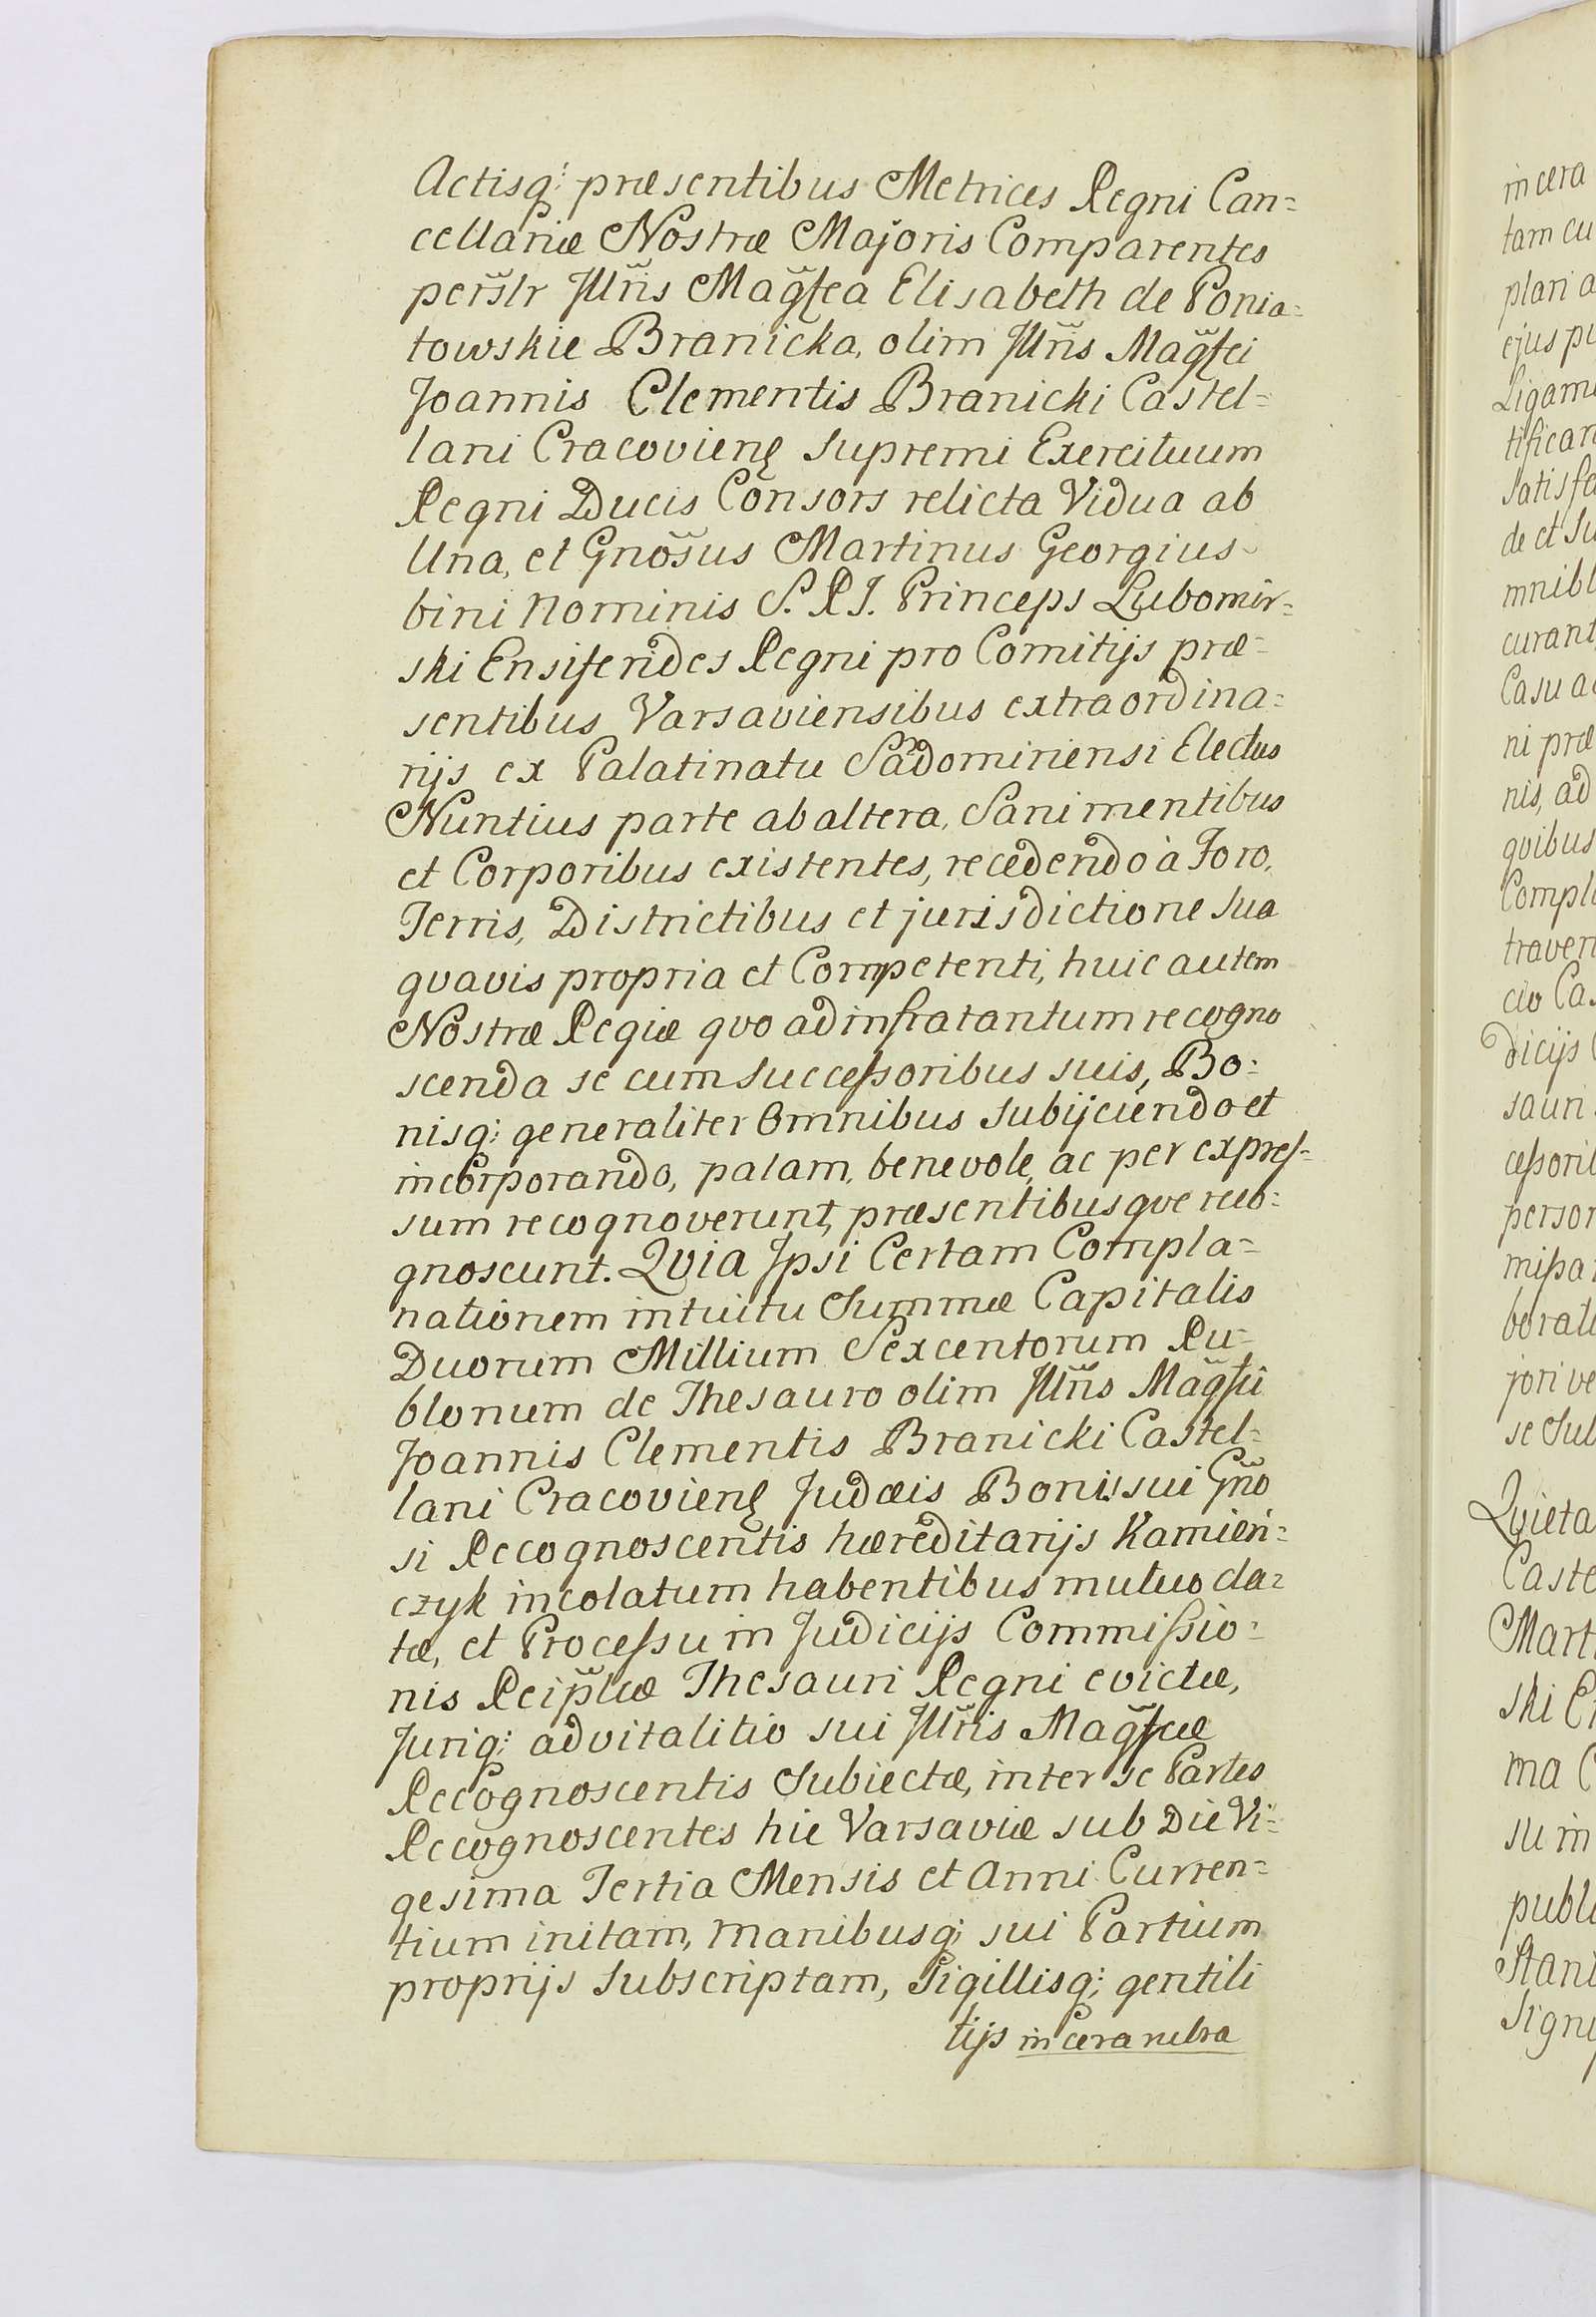 Actisq; præsentibus Metrices Regni Can=
cellariæ Nostræ Majoris Comparentes
persłr Jllris Magfca Elisabeth de Ponia=
towskie Branicka, olim Jllris Magfci
Joannis Clementis Branicki Castel=
lani Cracovieñ Supremi Exercituum
Regni Ducis Consors relicta Vidua ab
Una, et Gnosus Martinus Georgius
bini Nominis S. R J. Princeps Lubomir=
ski Ensiferides Regni pro Comitijs præ=
sentibus Varsaviensibus extraordina=
rijs ex Palatinatu Sandomiriensi Electus
Nuntius parte ab altera, Sani mentibus
et Corporibus existentes, recedendo à Foro,
Terris, Districtibus et jurisdictione Sua
qvavis propria et Competenti, huic autem
Nostræ Regiæ qvo ad infra tantum recogno
scenda se cum Successoribus suis, Bo=
nisq; generaliter Omnibus Subijciendo et
incorporando, palam, benevole, ac per expres=
sum recognoverunt, præsentibusqve reco=
gnoscunt. Qvia Jpsi Certam Compla=
nationem intuitu Summæ Capitalis
Duorum Millium Sexcentorum Ru=
blonum de Thesauro olim Jllris Magfci
Joannis Clementis Branicki Castel=
lani Cracovieñ Judæis Bonis sui Gño
si Recognoscentis hæreditarijs Kamień=
czyk incolatum habentibus mutuo da=
tæ, et Processu in Judicijs Commissio=
nis Reiplicæ Thesauri Regni evictæ,
Juriq; advitalitio sui Jllris Magfcæ
Recognoscentis Subiectæ, inter se Partes
Recognoscentes hic Varsaviæ sub Die Vi=
gesima Tertia Mensis et Anni Curren=
tium initam, Manibusq; sui Partium
proprijs Subscriptam, Sigillisq; gentili
tijs in Cera rubra
in cera
tam cu
plari a
ejus pu
Ligame
tifican
Satisfa
de et Su
mnibu
curant
Casu a
ni præ
nis, ad
qvibus
Compla
traven
cio Ca
dicijs
saun
cessorib
person
missa
borati
jori ve
se Sub
Qvieta
Caste
Mart
ski E
ma C
su in
publi
Stani
Signu